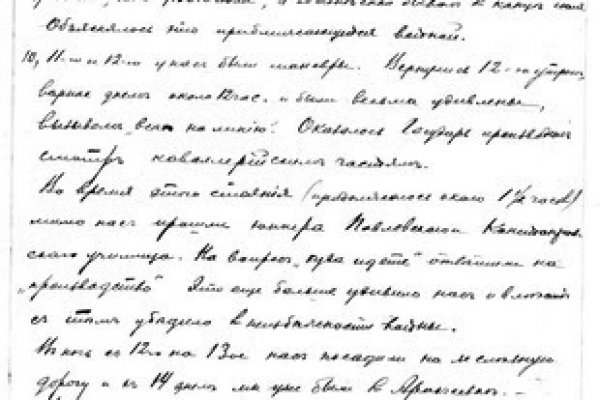 Объяснялось это приближающейся войной.
10, 11-го и 12-го у нас были маневры. Вернулись 12-го утром,
вернее днем около 12 час. и были весьма удивлены,
вызовом "всех на линию". Оказалось Государь производил
смотр кавалерийским частям.
Во время этого стояния (продолжалось около 1½ часов)
мимо нас прошли юнкера Павловского
ского училища. На вопрос "куда идете" ответили на
"производство". Это еще больше удивило нас и вместе
с тем убедило в неизбежности войны.
В ночь с 12-го на 13-ое нас посадили на железную
дорогу и с 14 днем мы уже были в